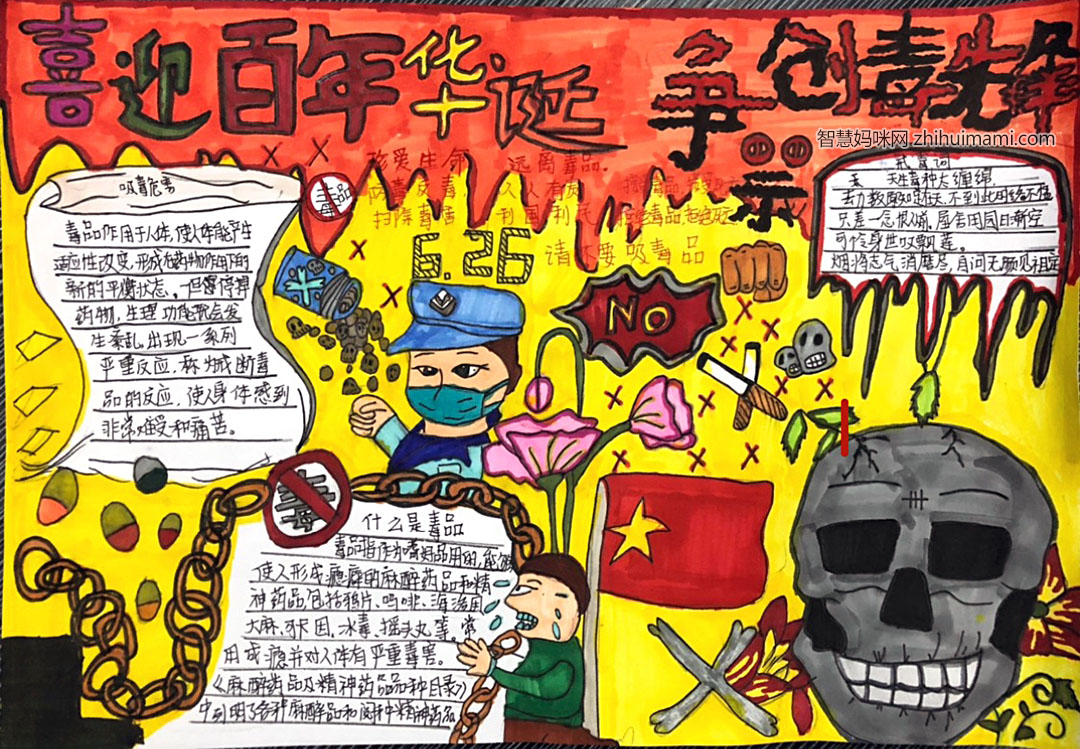 喜迎百年华诞 争创禁毒先锋
智慧妈咪网 zhihuimami.com
珍爱生命 远离毒品
防毒反毒 人人有责
扫除毒害 利国利民
请不要吸毒品
6.26
吸毒危害
毒品作用于人体,使人体能产生
适应性改变,形成在药物作用下的
新的平衡状态。一旦停掉
药物,生理功能就会发
生紊乱出现一系列
严重反应,称为戒断毒
品的反应,使人身体感到
非常难受和痛苦。
毒品
NO
戒毒词
天生毒种太缠绵
去力教既知趋
只差一念根烦,屋舍田园日渐空
可怜身世叹飘蓬。
烟将志气消磨尽,自问无颜见祖宗
毒
什么是毒品
毒品指作为嗜好品用的,能够
使人形成瘾癖的麻醉药品和精
神药品,包括鸦片、吗啡、海洛因
大麻、可卡因、冰毒、摇头丸等。常
用成瘾并对人体有严重毒害。
《麻醉药品及精神药品品种目录》
中列明了各种麻醉品和精神药品